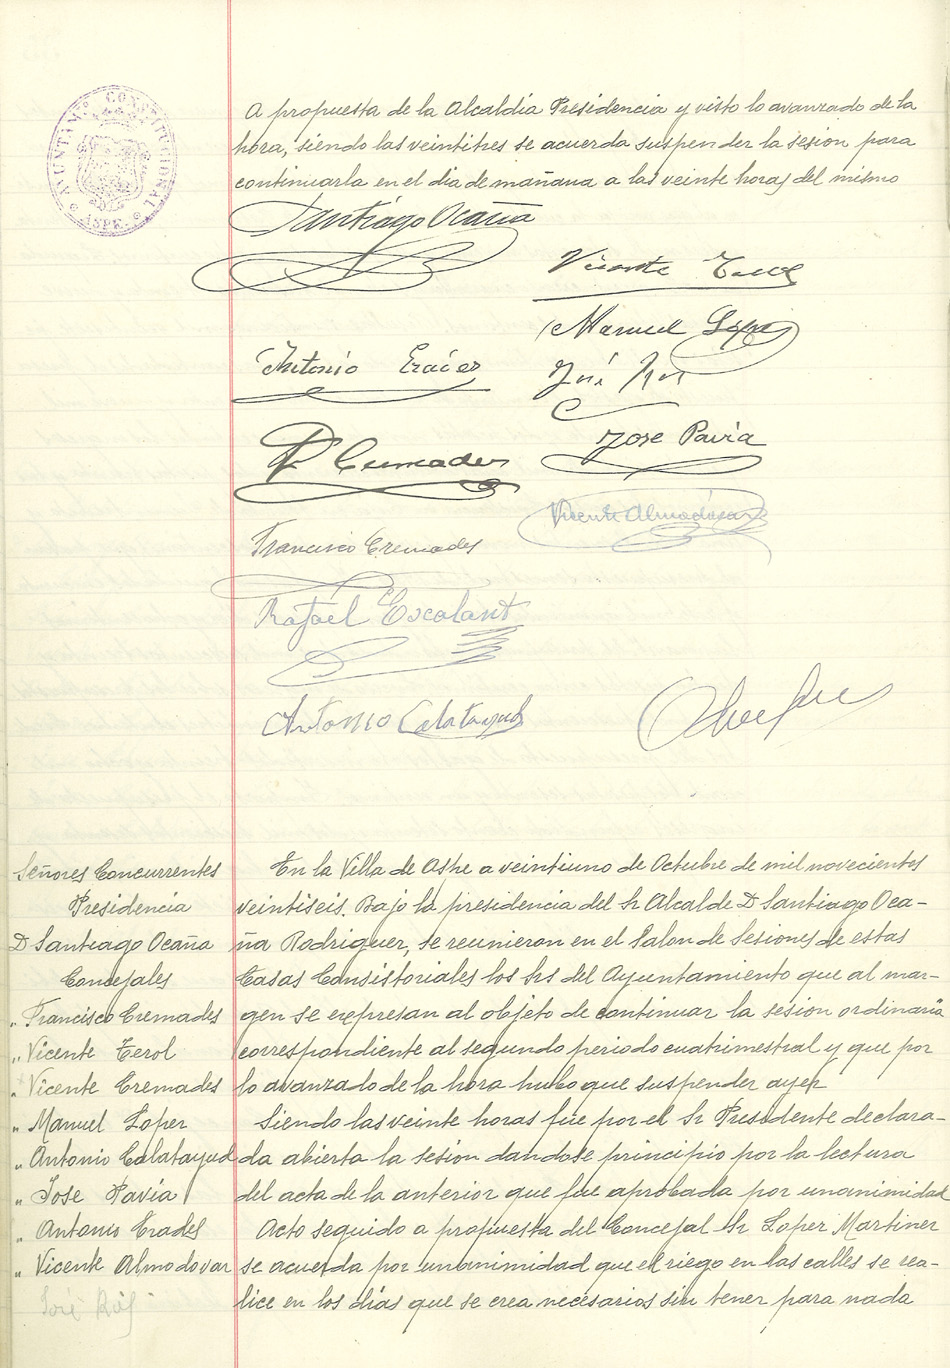 AYUNTAMTO CONSTITUCIONAL
ASPE
A propuesta de la Alcaldia Presidencia y visto lo avanzado de la
hora, siendo las veintitres se acuerda suspender la sesion para
continuarla en el dia de mañana a las veinte horas del mismo
Santiago Ocaña
Vicente Terol
Manuel Lopez
Antonio Erades
José Ruiz
Jose Pavia
V. Cremades
Vicente Almodovar
Francisco Cremades
Rafael Escolant
Antonio Calatayud
Señores Concurrentes
Presidencia
D Santiago Ocaña
Concejales
" Francisco Cremades
" Vicente Terol
" Vicente Cremades
" Manuel Lopez
" Antonio Calatayud
" Jose Pavia
" Antonio Erades
" Vicente Almodovar
José Ruiz
En la Villa de Aspe a veintiuno de Octubre de mil novecientos
veintiseis. Bajo la presidencia del Sr Alcalde D Santiago Oca-
ña Rodriguez, se reunieron en el Salon de Sesiones de estas
Casas Consistoriales los Srs del Ayuntamiento que al mar-
gen se expresan al objeto de continuar la sesion ordinaria
correspondiente al segundo periodo cuatrimestral y que por
lo avanzado de la hora hubo que suspender ayer
Siendo las veinte horas fue por el Sr Presidente declara-
da abierta la sesion dandose principio por la lectura
del acta de la anterior que fue aprobada por unanimidad
Acto seguido a propuesta del Concejal Sr Lopez Martinez
se acuerda por unanimidad que el riego en las calles se rea-
lice en los dias que se crea necesarios sin tener para nada